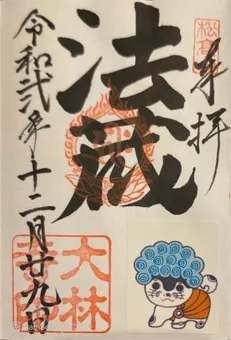 奉拝
法蔵
令和弐年十二月廿九日
大林
寺印